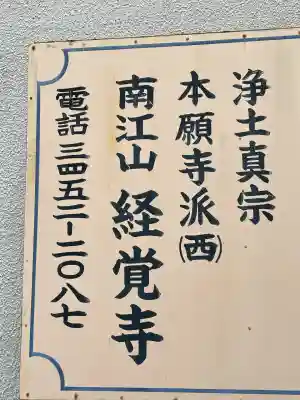 浄土真宗
本願寺派(西)
南江山 経覚寺
電話 三四五二-二〇八七